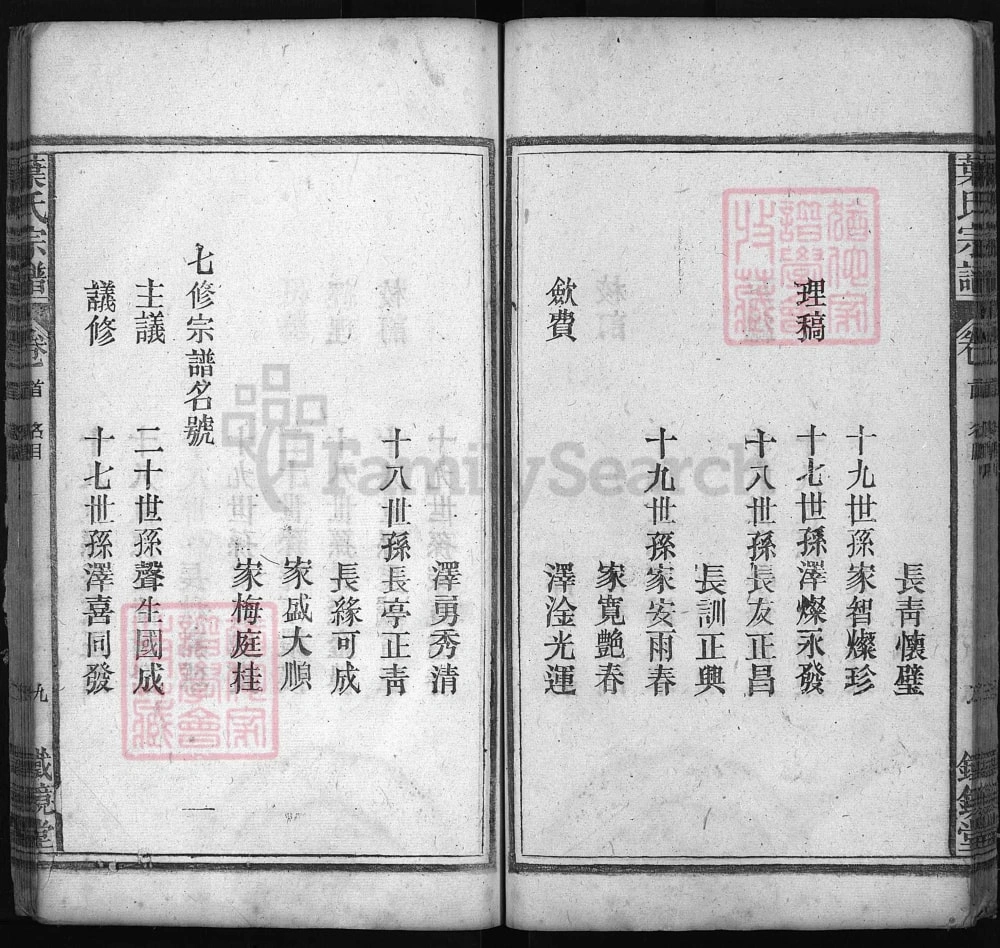 葉氏宗譜
長靑懷璧
十九世孫家智燦珍
理稿
十七世孫澤燦永發
十八世孫長友正昌
長訓正興
十九世孫家安雨春
家寬艷春
歛費
澤淦光運
澤勇秀清
十八世孫長亭正靑
長緣可成
家盛大順
家梅庭桂
七修宗譜名號
主議
二十世孫聲生國成
議修
十七世孫澤喜同發
葉氏宗譜
卷首
名目
九
鐵鏡堂
FamilySearch